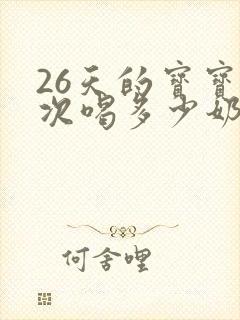 26天的宝宝
次喝多少奶
何舍哩